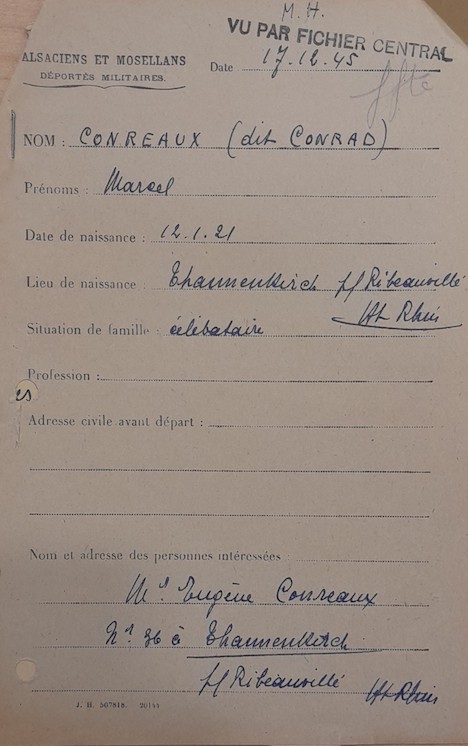 M.H.
VU PAR FICHIER CENTRAL
ALSACIENS ET MOSELLANS
DÉPORTÉS MILITAIRES.
Date 17.12.45
NOM : CONREAUX (dit CONRAD)
Prénoms : Marcel
Date de naissance : 12.1.21
Lieu de naissance : Thannenkirch p/ Ribeauvillé
Ht Rhin
Situation de famille : célibataire
Profession :
Adresse civile avant départ :
Nom et adresse des personnes intéressées :
Mr Eugène Conreaux
N° 36 à Thannenkirch
p/ Ribeauvillé Ht Rhin
J. H. 507818.